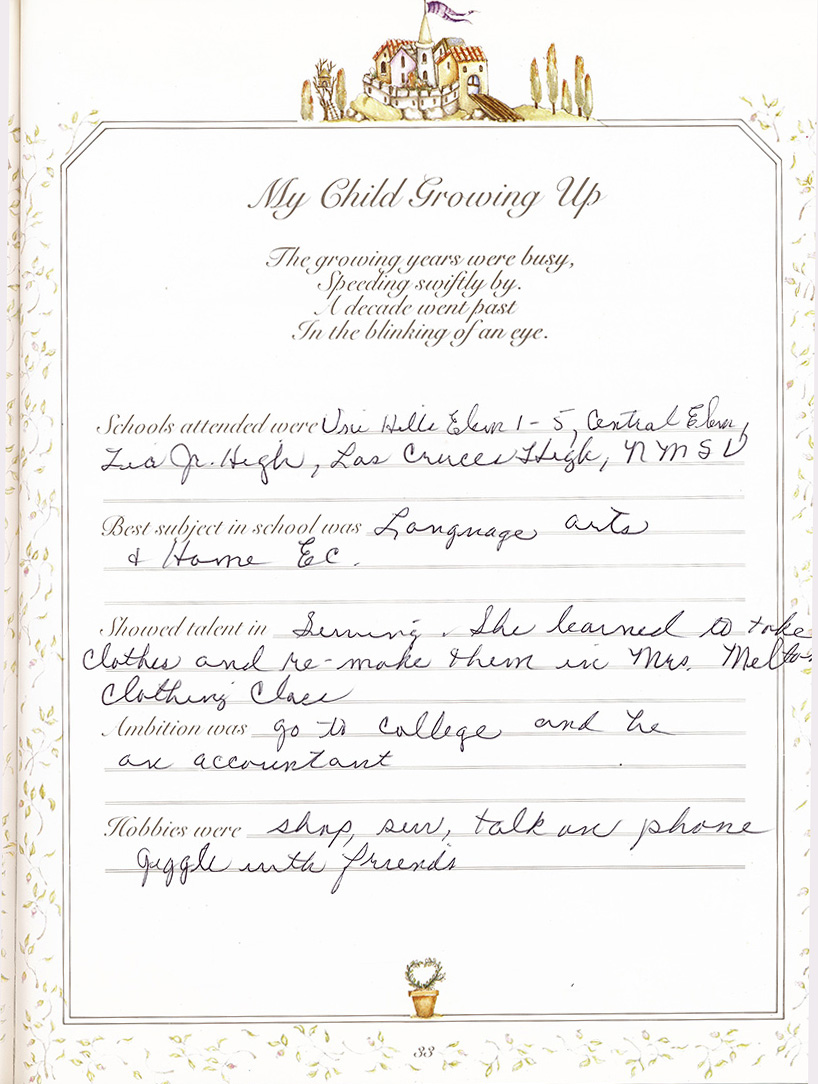 My Child Growing Up
The growing years were busy,
Speeding swiftly by.
A decade went past
In the blinking of an eye.
Schools attended were Uni Hills Elem 1-5, Central Elem,
Zia Jr. High, Las Cruces High, NMSU
Best subject in school was Language arts
& Home Ec.
Showed talent in Sewing. She learned to take
clothes and re-make them in Mrs. Melton
Clothing Class
Ambition was go to college and be
an accountant
Hobbies were shop, sew, talk on phone
giggle with friends
33